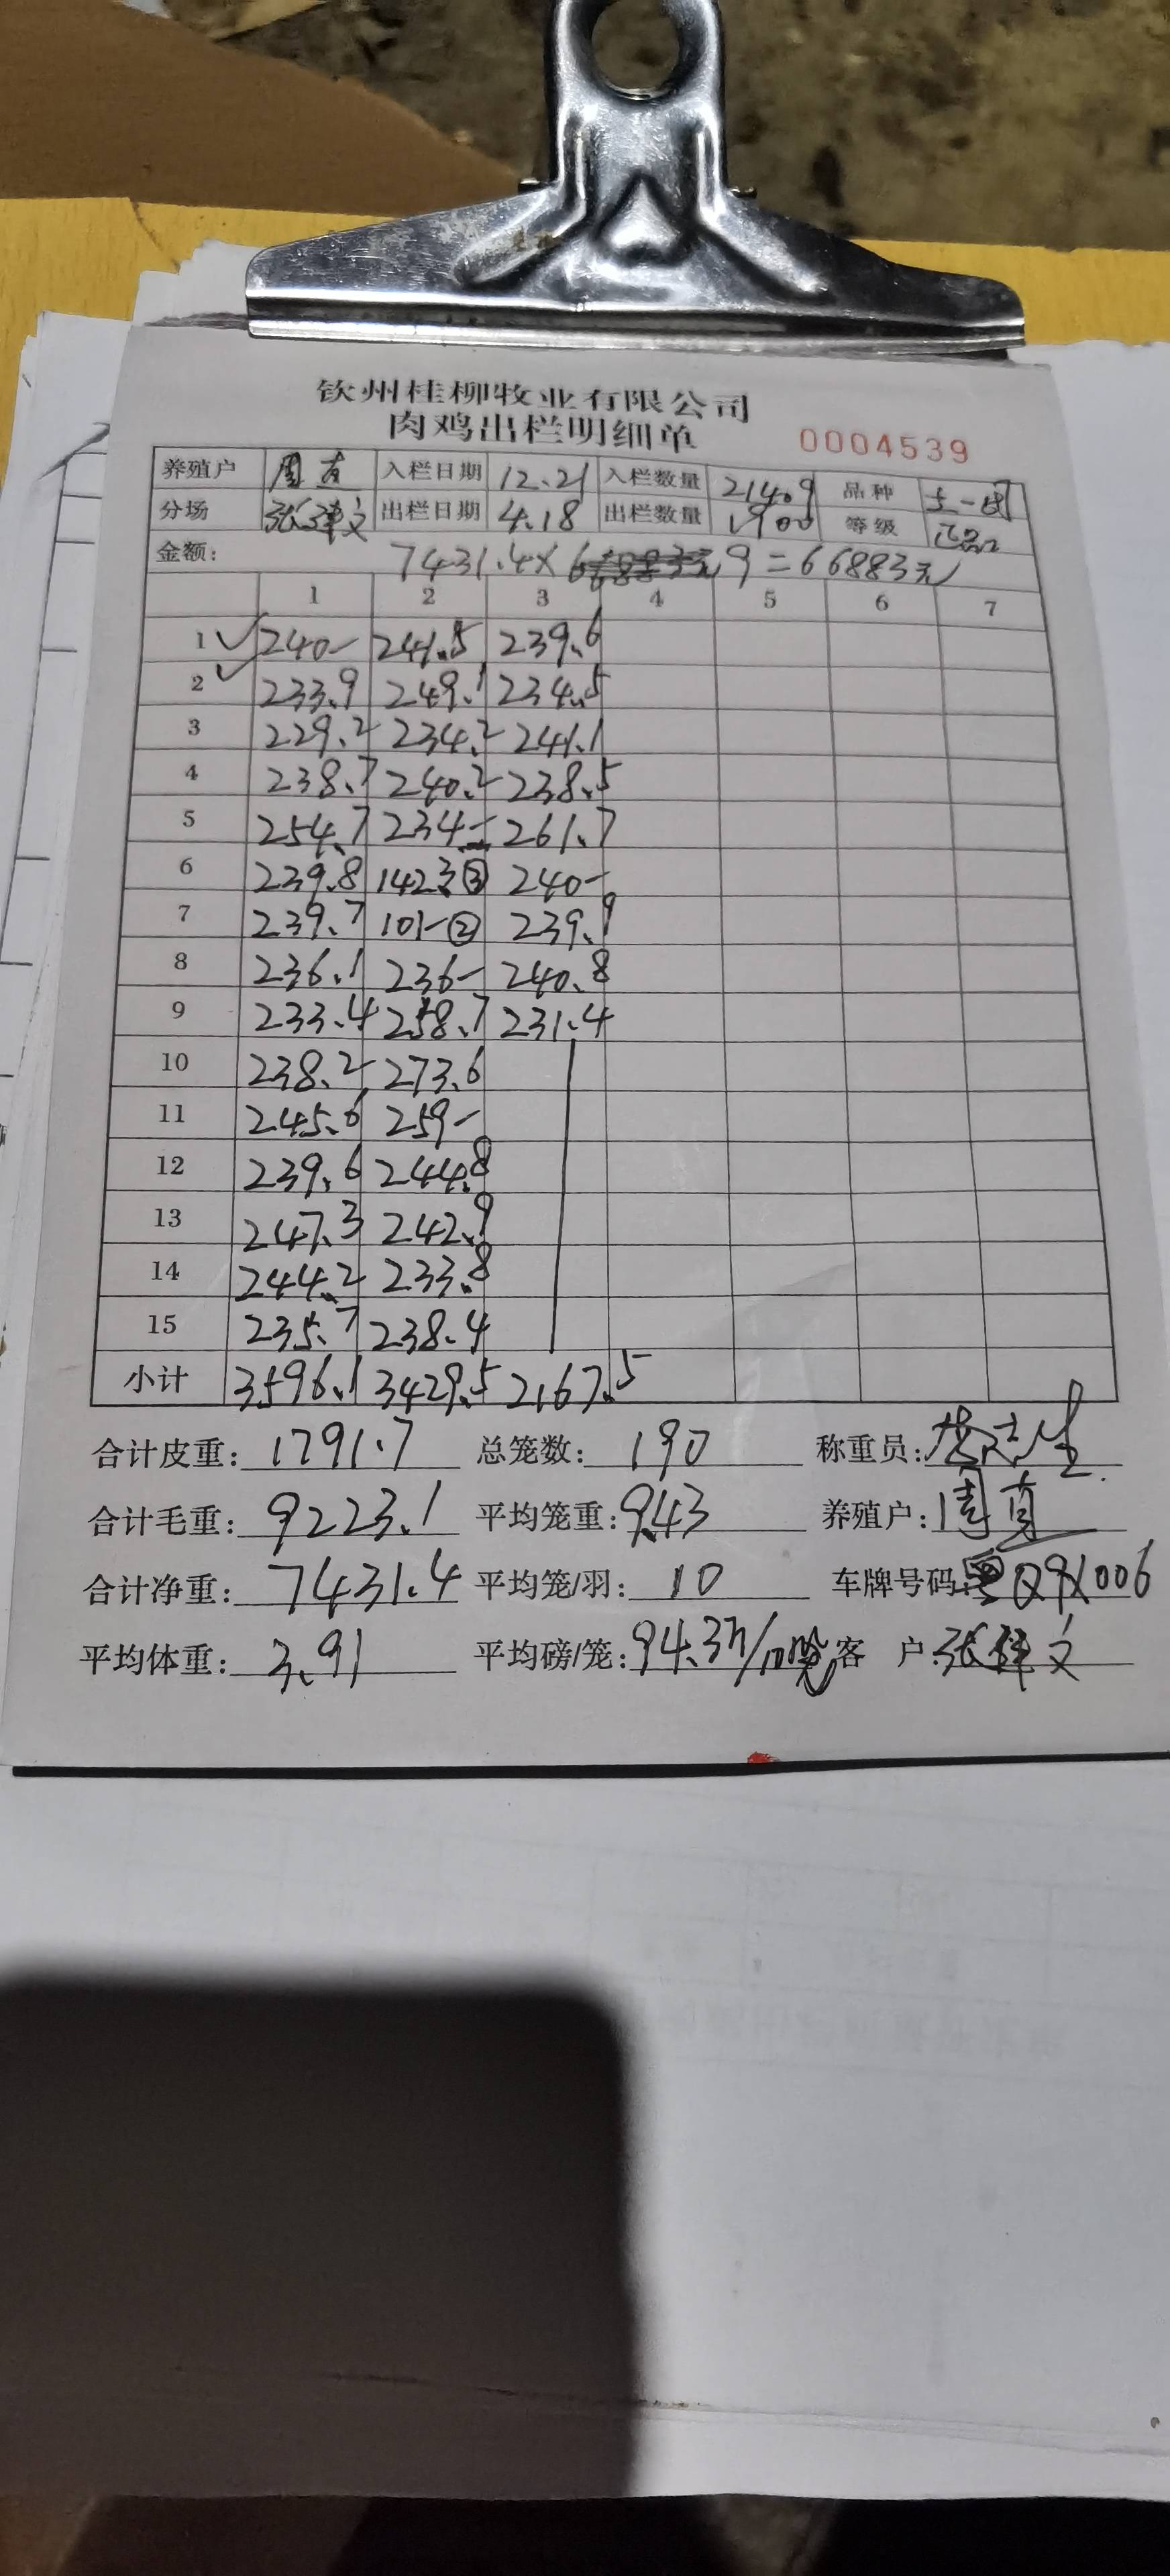 钦州桂柳牧业有限公司
肉鸡出栏明细单 0004539
养殖户 周真 入栏日期 12.21 入栏数量 21409 品种
分场 张祥文 出栏日期 4.18 出栏数量 1900 等级 正品
金额: 7431.4× 9=66883元
1 2 3 4 5 6 7
1 240- 241.5 239.6
2 233.9 249.1 234.5
3 229.2 234.2 241.1
4 238.7 240.2 238.5
5 254.7 234- 261.7
6 239.8 142.3③ 240-
7 239.7 101-② 239.9
8 236.1 236- 240.8
9 233.4 258.7 231.4
10 238.2 273.6
11 245.6 259-
12 239.6 244.8
13 247.3 242.9
14 244.2 233.8
15 235.7 238.4
小计 3596.1 3429.5 2167.5
合计皮重: 1791.7 总笼数: 190 称重员:
合计毛重: 9223.1 平均笼重: 9.43 养殖户: 周真
合计净重: 7431.4 平均笼/羽: 10 车牌号码:
平均体重: 3.91 平均磅/笼: 94.3 客 户: 张祥文